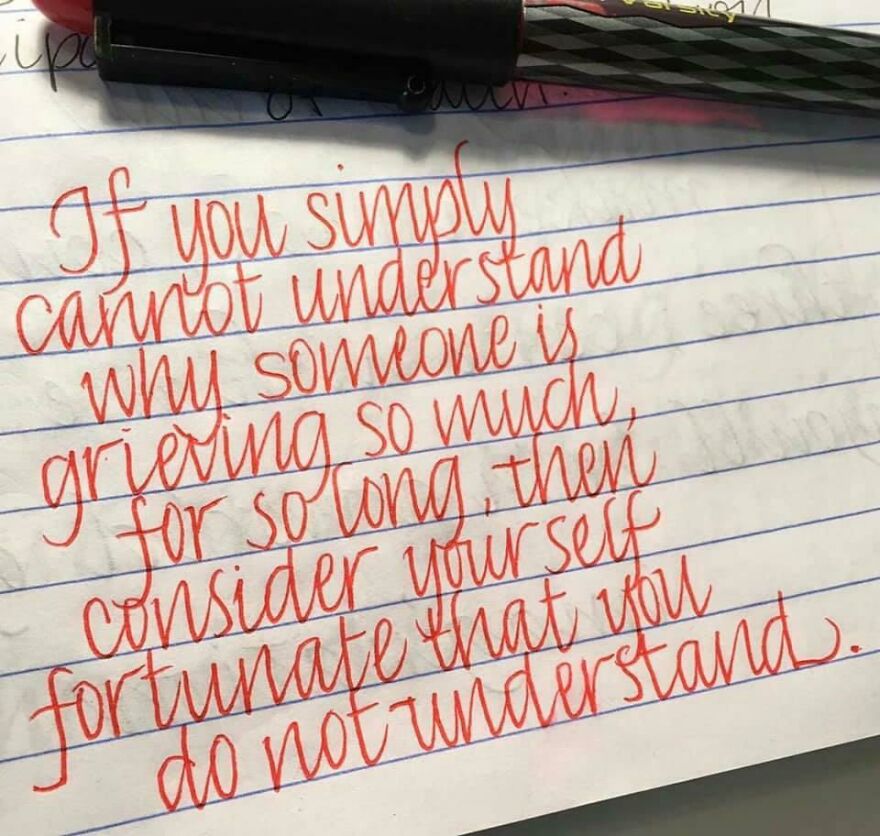 Varsity
If you simply
cannot understand
why someone is
grieving so much,
for so long, then
consider yourself
fortunate that you
do not understand.